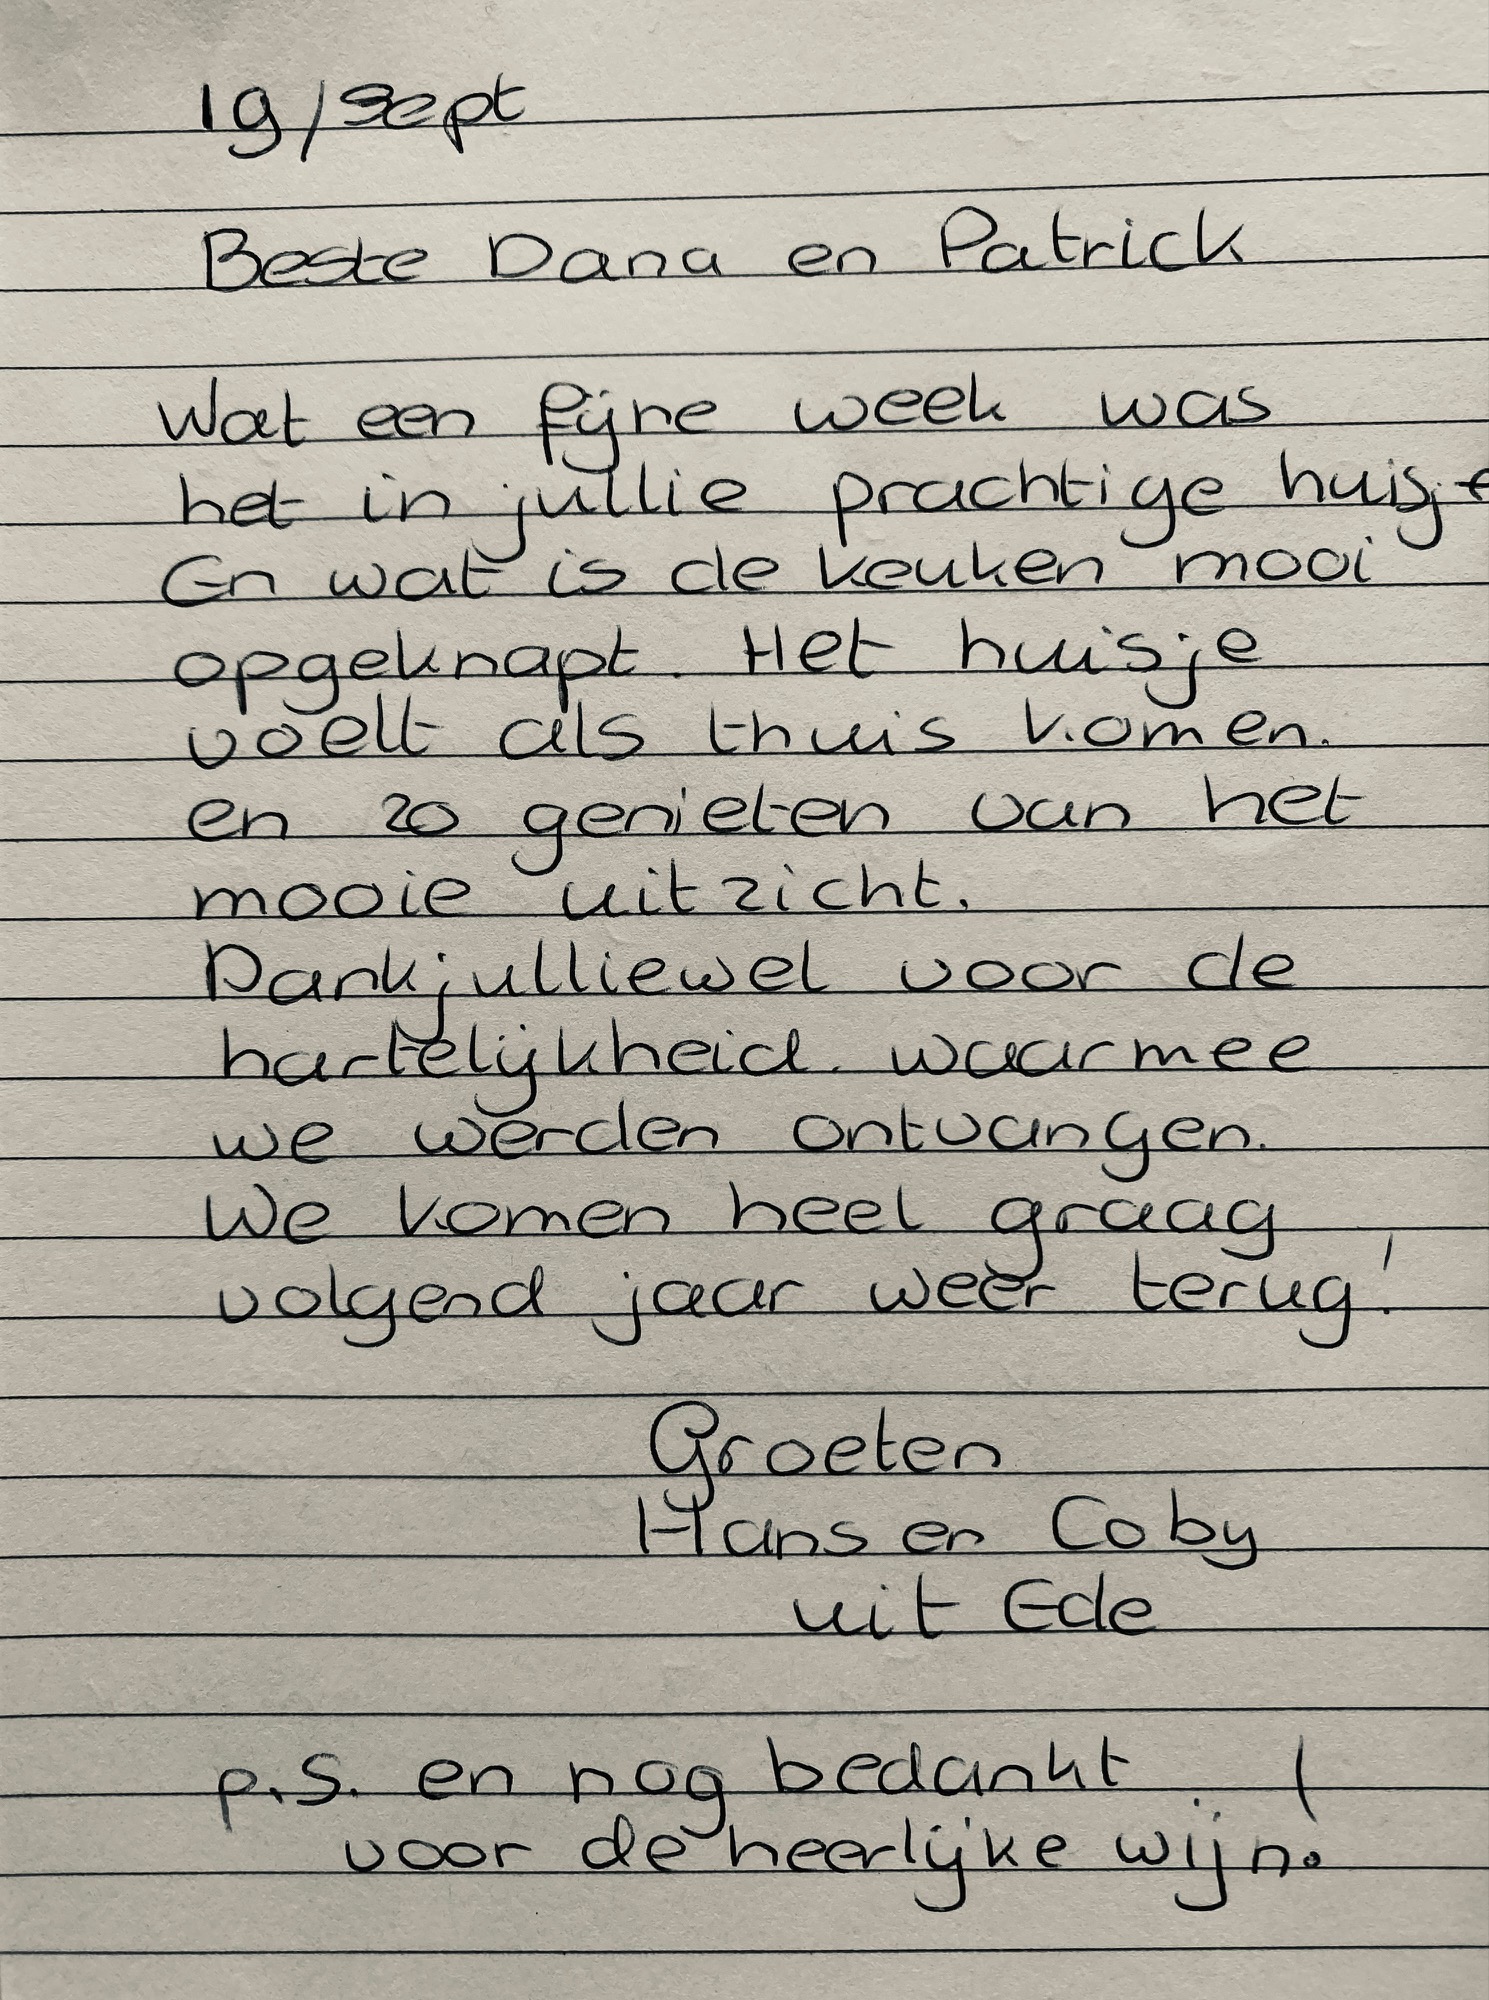 19/sept
Beste Dana en Patrick
Wat een fijne week was
het in jullie prachtige huisje
En wat is de keuken mooi
opgeknapt. Het huisje
voelt als thuis komen.
en zo genieten van het
mooie uitzicht.
Dankjulliewel voor de
hartelijkheid. waarmee
we werden ontvangen.
We komen heel graag
volgend jaar weer terug!
Groeten
Hans en Coby
uit Ede
p.s. en nog bedankt
voor de heerlijke wijn!